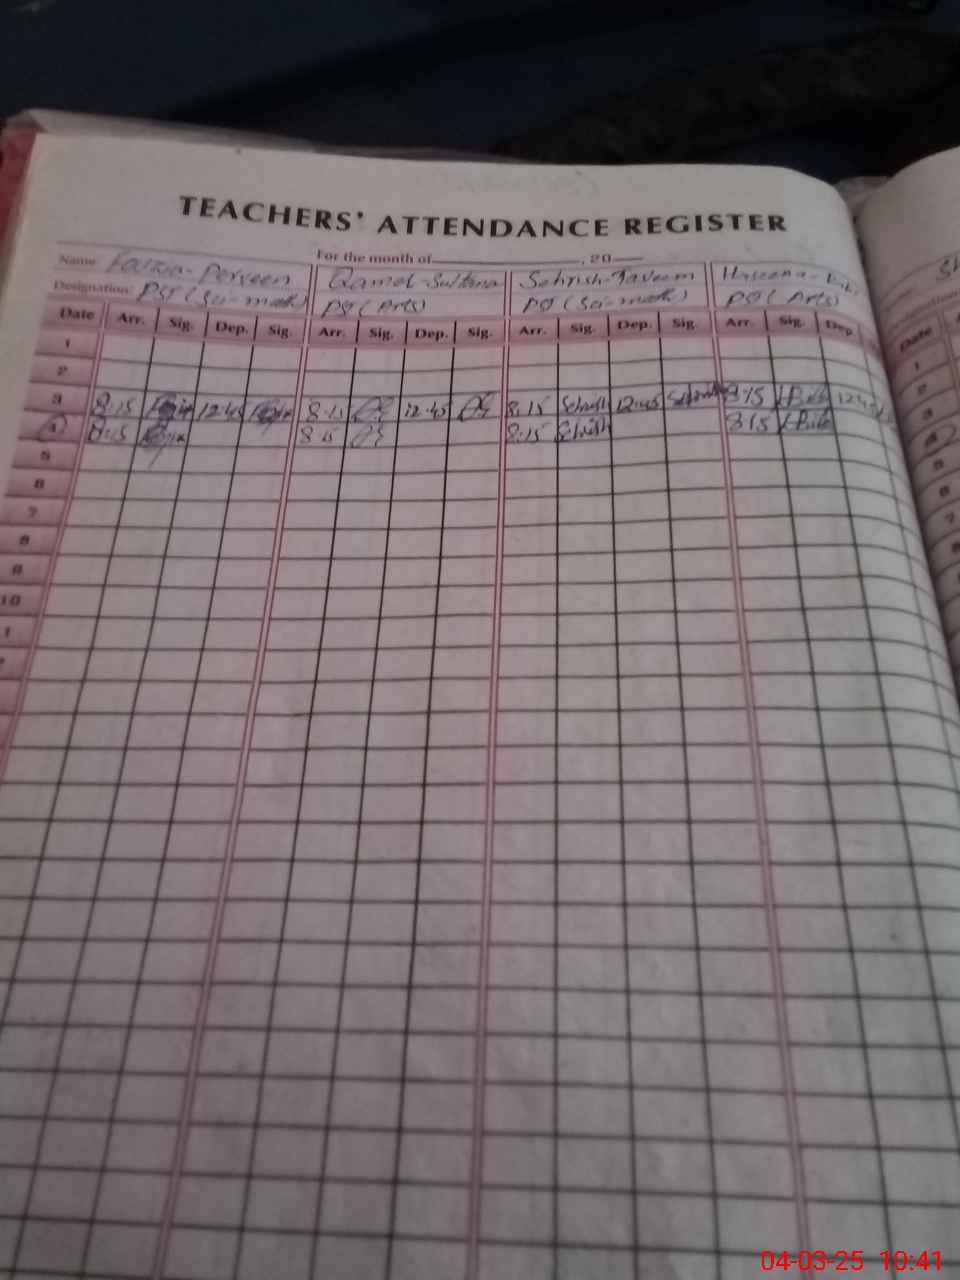 TEACHERS' ATTENDANCE REGISTER
For the month of , 20
Name: Fouzia-Perveen Qamel-Sultana Sehrish-Taveem Haseena-
Designation: PST (Sci-math) PST (Arts) PST (Sci-math) PST (Arts)
Date Arr. Sig. Dep. Sig. Arr. Sig. Dep. Sig. Arr. Sig. Dep. Sig. Arr. Sig. Dep. Date
1 1
2 2
3 8:15 12:45 8:15 12:45 8:15 Sehrish 12:45 Sehrish 8:15 H.Bibi 12:45 3
4 8:15 8:15 8:15 Sehrish 8:15 H.Bibi 4
5 5
6 6
7 7
8 8
9
10
1
04-03-25 10:41